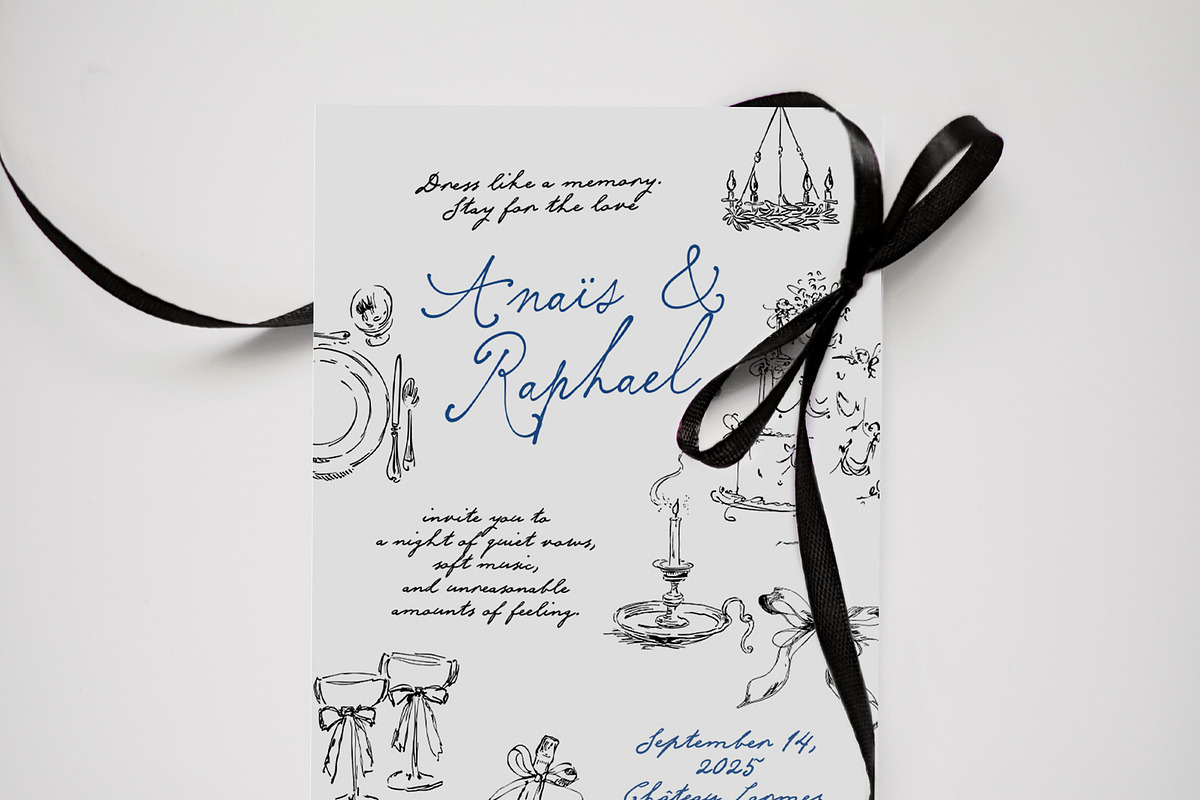 Dress like a memory.
Stay for the love
Anaïs &
Raphael
invite you to
a night of quiet vows,
soft music,
and unreasonable
amounts of feeling.
September 14,
2025
Château